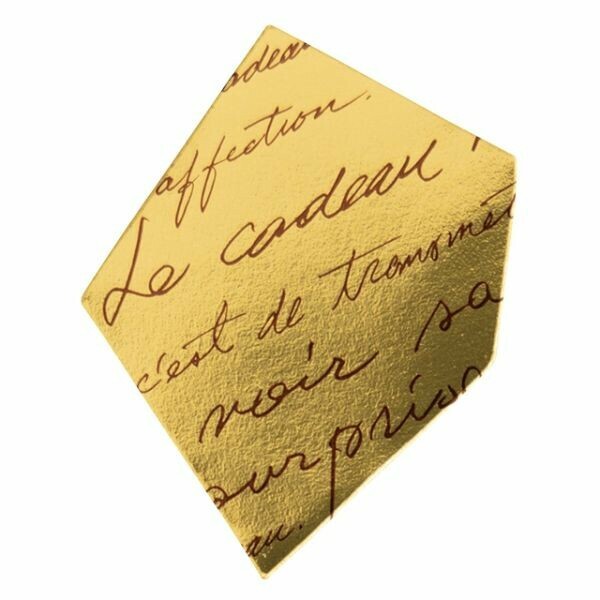 adeau
affection.
Le cadeau
c'est de transmet
voir sa
surpris
au.